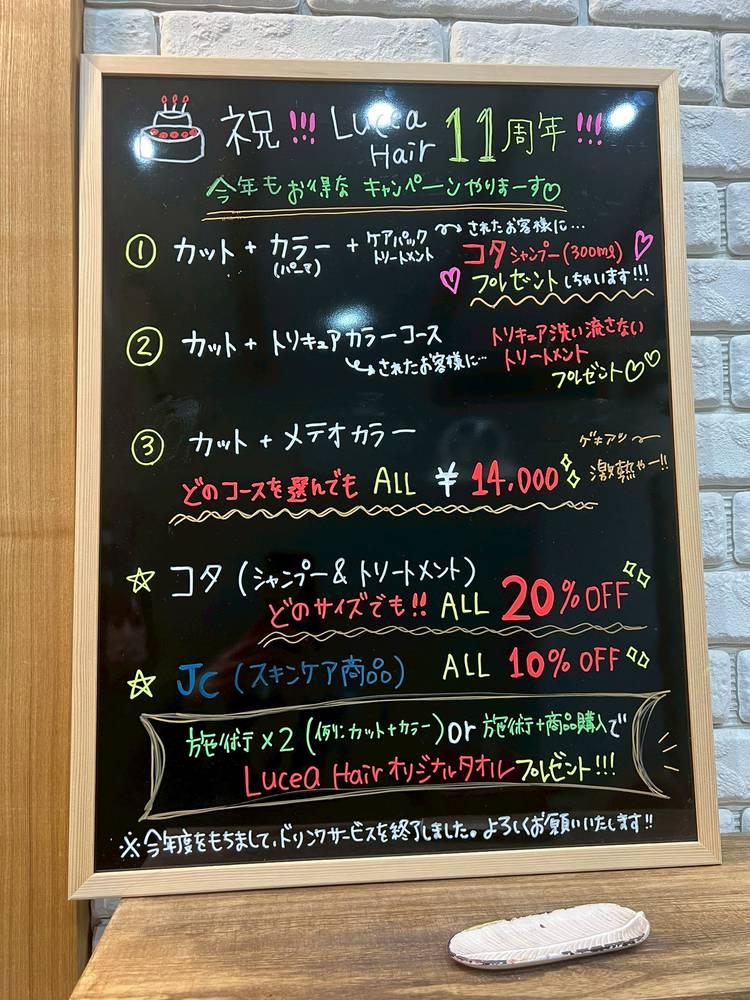 祝!!! Lucea Hair 11周年!!!
今年もお得なキャンペーンやりまーす♡
① カット + カラー (パーマ) + ケアパックトリートメント されたお客様に…
コタシャンプー(300ml)
プレゼントしちゃいます!!!
② カット + トリキュアカラーコース
されたお客様に…
トリキュア洗い流さない
トリートメント
プレゼント♡♡
③ カット + メテオカラー
どのコースを選んでも ALL ¥14,000
ゲキアツー
激熱やー!!
☆ コタ (シャンプー & トリートメント)
どのサイズでも!! ALL 20%OFF
☆ JC (スキンケア商品) ALL 10%OFF
施術×2 (例:カット+カラー) or 施術+商品購入で
Lucea Hair オリジナルタオルプレゼント!!!
※今年度をもちまして、ドリンクサービスを終了しました。よろしくお願いいたします!!